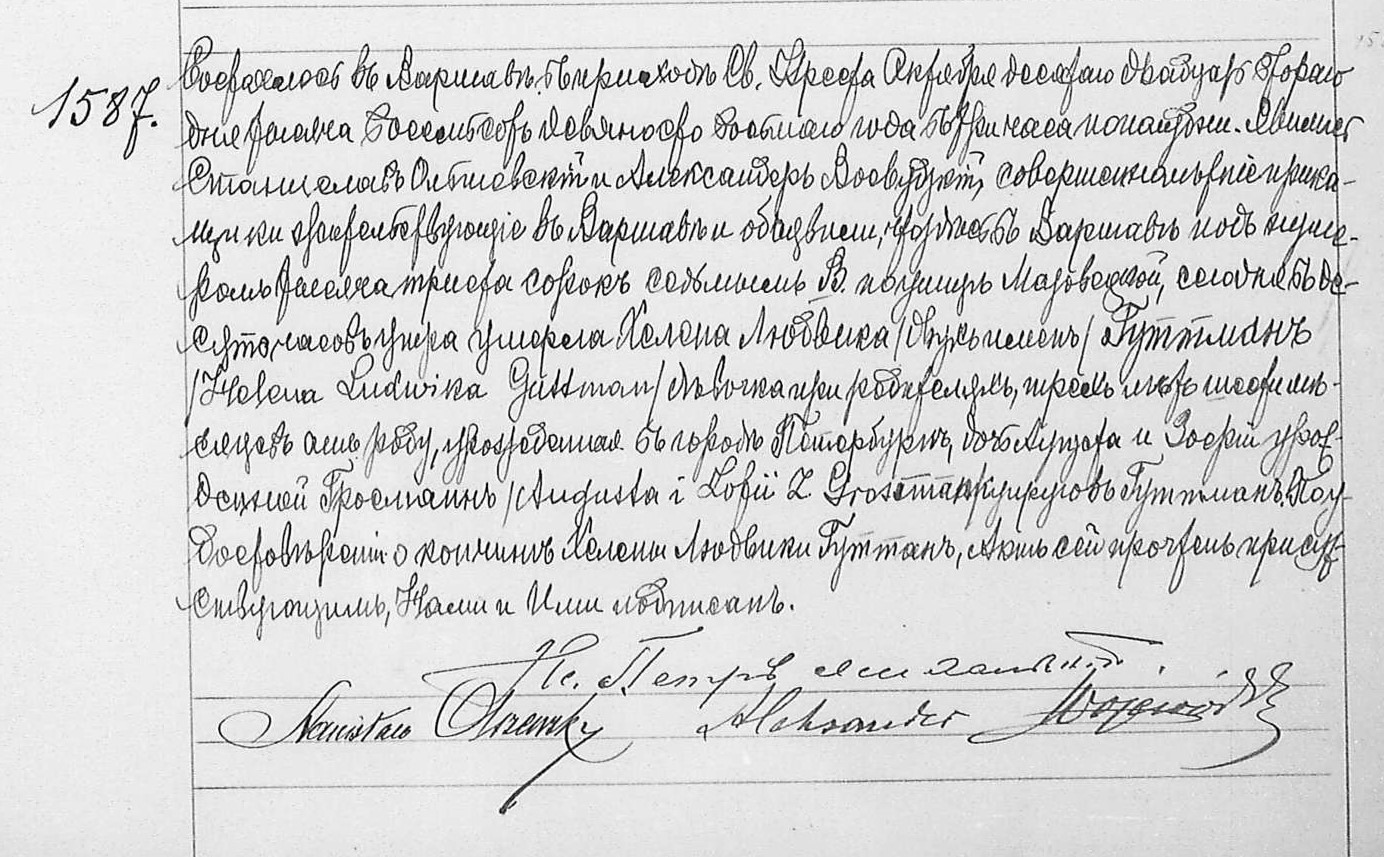 1587.
Состоялось въ Варшавѣ, въ приходѣ Св. Креста Октября десятаго двадцать втораго
дня тысяча восемьсотъ девяносто восьмаго года въ три часа пополудни. Явились
Станиславъ Ольшевскій и Александръ совершеннолѣтніе прика-
щики жительствующіе въ Варшавѣ и объявили, что здѣсь въ Варшавѣ подъ нуме-
ромъ тысяча триста сорокъ седьмымъ В. по улицѣ Мазовецкой, сего дня въ де-
сять часовъ утра умерла Хелена Людвика /двухъ именъ/ Гуттманъ
/Helena Ludwika Guttman/ дѣвочка при родителяхъ, трехъ лѣтъ шести мѣ-
сяцевъ отъ роду, урожденная въ городѣ Петербургѣ, дочь Августа и Зофіи урож-
денной Гросманъ /Augusta i Zofii z Grossman/ супруговъ Гуттманъ. По у-
достовѣреніи о кончинѣ Хелены Людвики Гуттанъ, Актъ сей прочтенъ присут-
ствующимъ, Нами и Ими подписанъ.
Кс. Петръ
Stanisław Olszewsky Aleksander